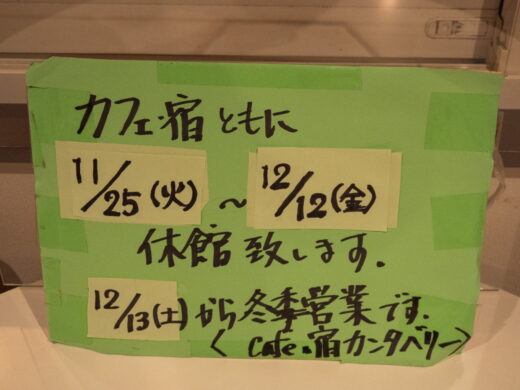 カフェ・宿ともに
11/25(火)~12/12(金)
休館致します.
12/13(土)から冬季営業です.
〈cafe・宿カンタベリー〉